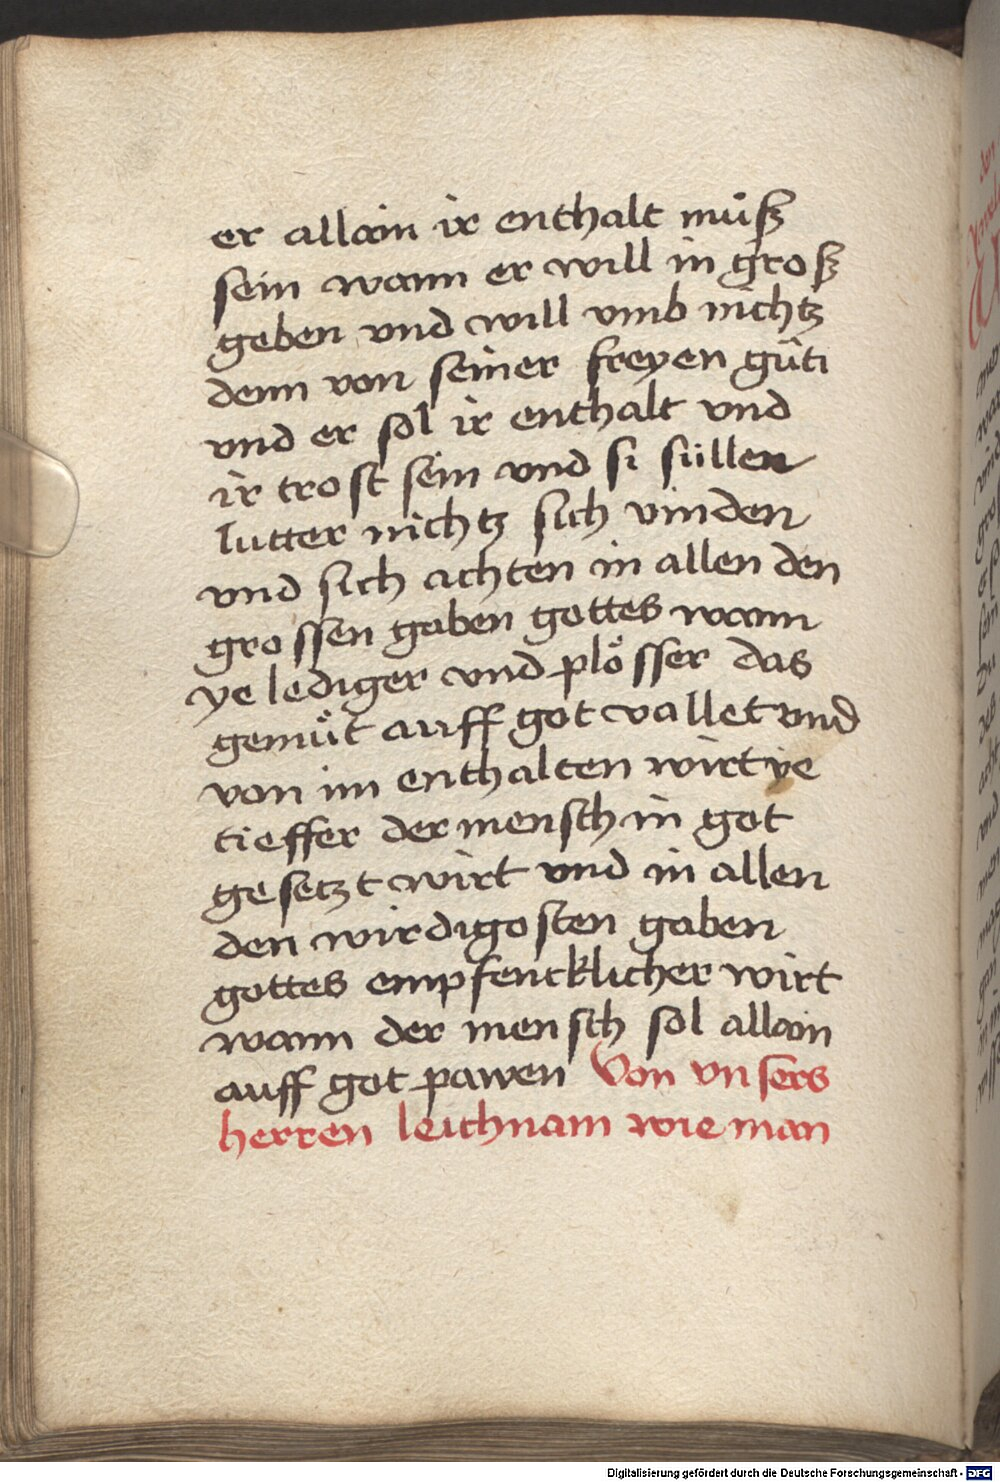 er allain ir enthalt muͦſz
ſein wann er will in groſz
geben vnd will vmb nichtz
denn von ſeiner freyen guͤti
vnd er ſol ir enthalt vnd
ir troſt ſein vnd ſi ſüllen
lutter nichtz ſich vinden
vnd ſich achten in allen den
groſſen gaben gottes wann
ye lediger vnd ploͤſſer das
gemuͤt auff got vallet vnd
von im enthalten wirt ye
tieffer der menſch in got
geſetzt wirt vnd in allen
den wirdigoſten gaben
gottes empfencklicher wirt
wann der menſch ſol allain
auff got pawen Von vnſers
herren leichnam wie man
Digitalisierung gefördert durch die Deutsche Forschungsgemeinschaft - DFG